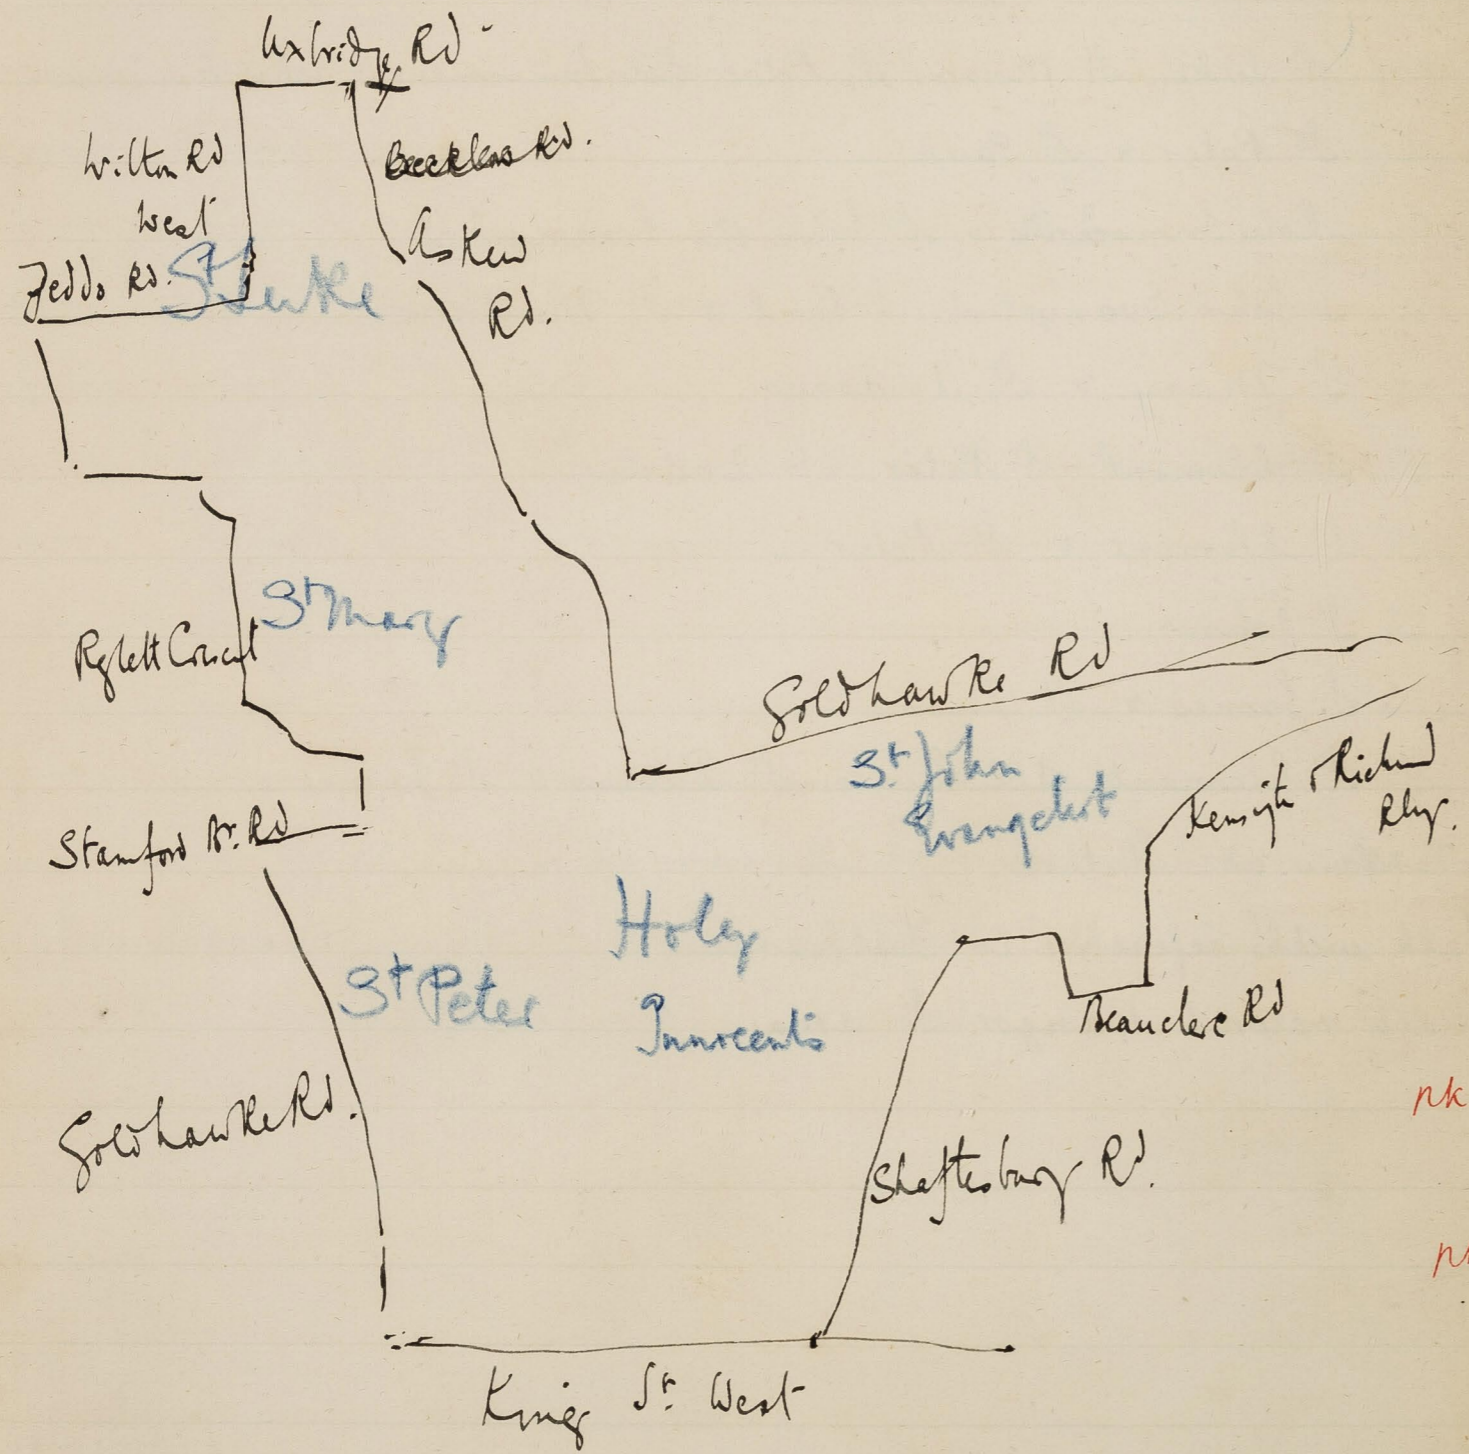 Uxbridge Rd
Wilton Rd
West
Becklow Rd.
Askew
Rd.
Zeddo Rd.
St Luke
St Mary
Rylett Crescent
Goldhawke Rd
St John
Evangelist
Kensigtn & Richmd
Rly.
Stamford Br. Rd
Holy
Innocents
St Peter
Beauclerc Rd
Goldhawke Rd.
Shaftesbury Rd.
King St. West
nk